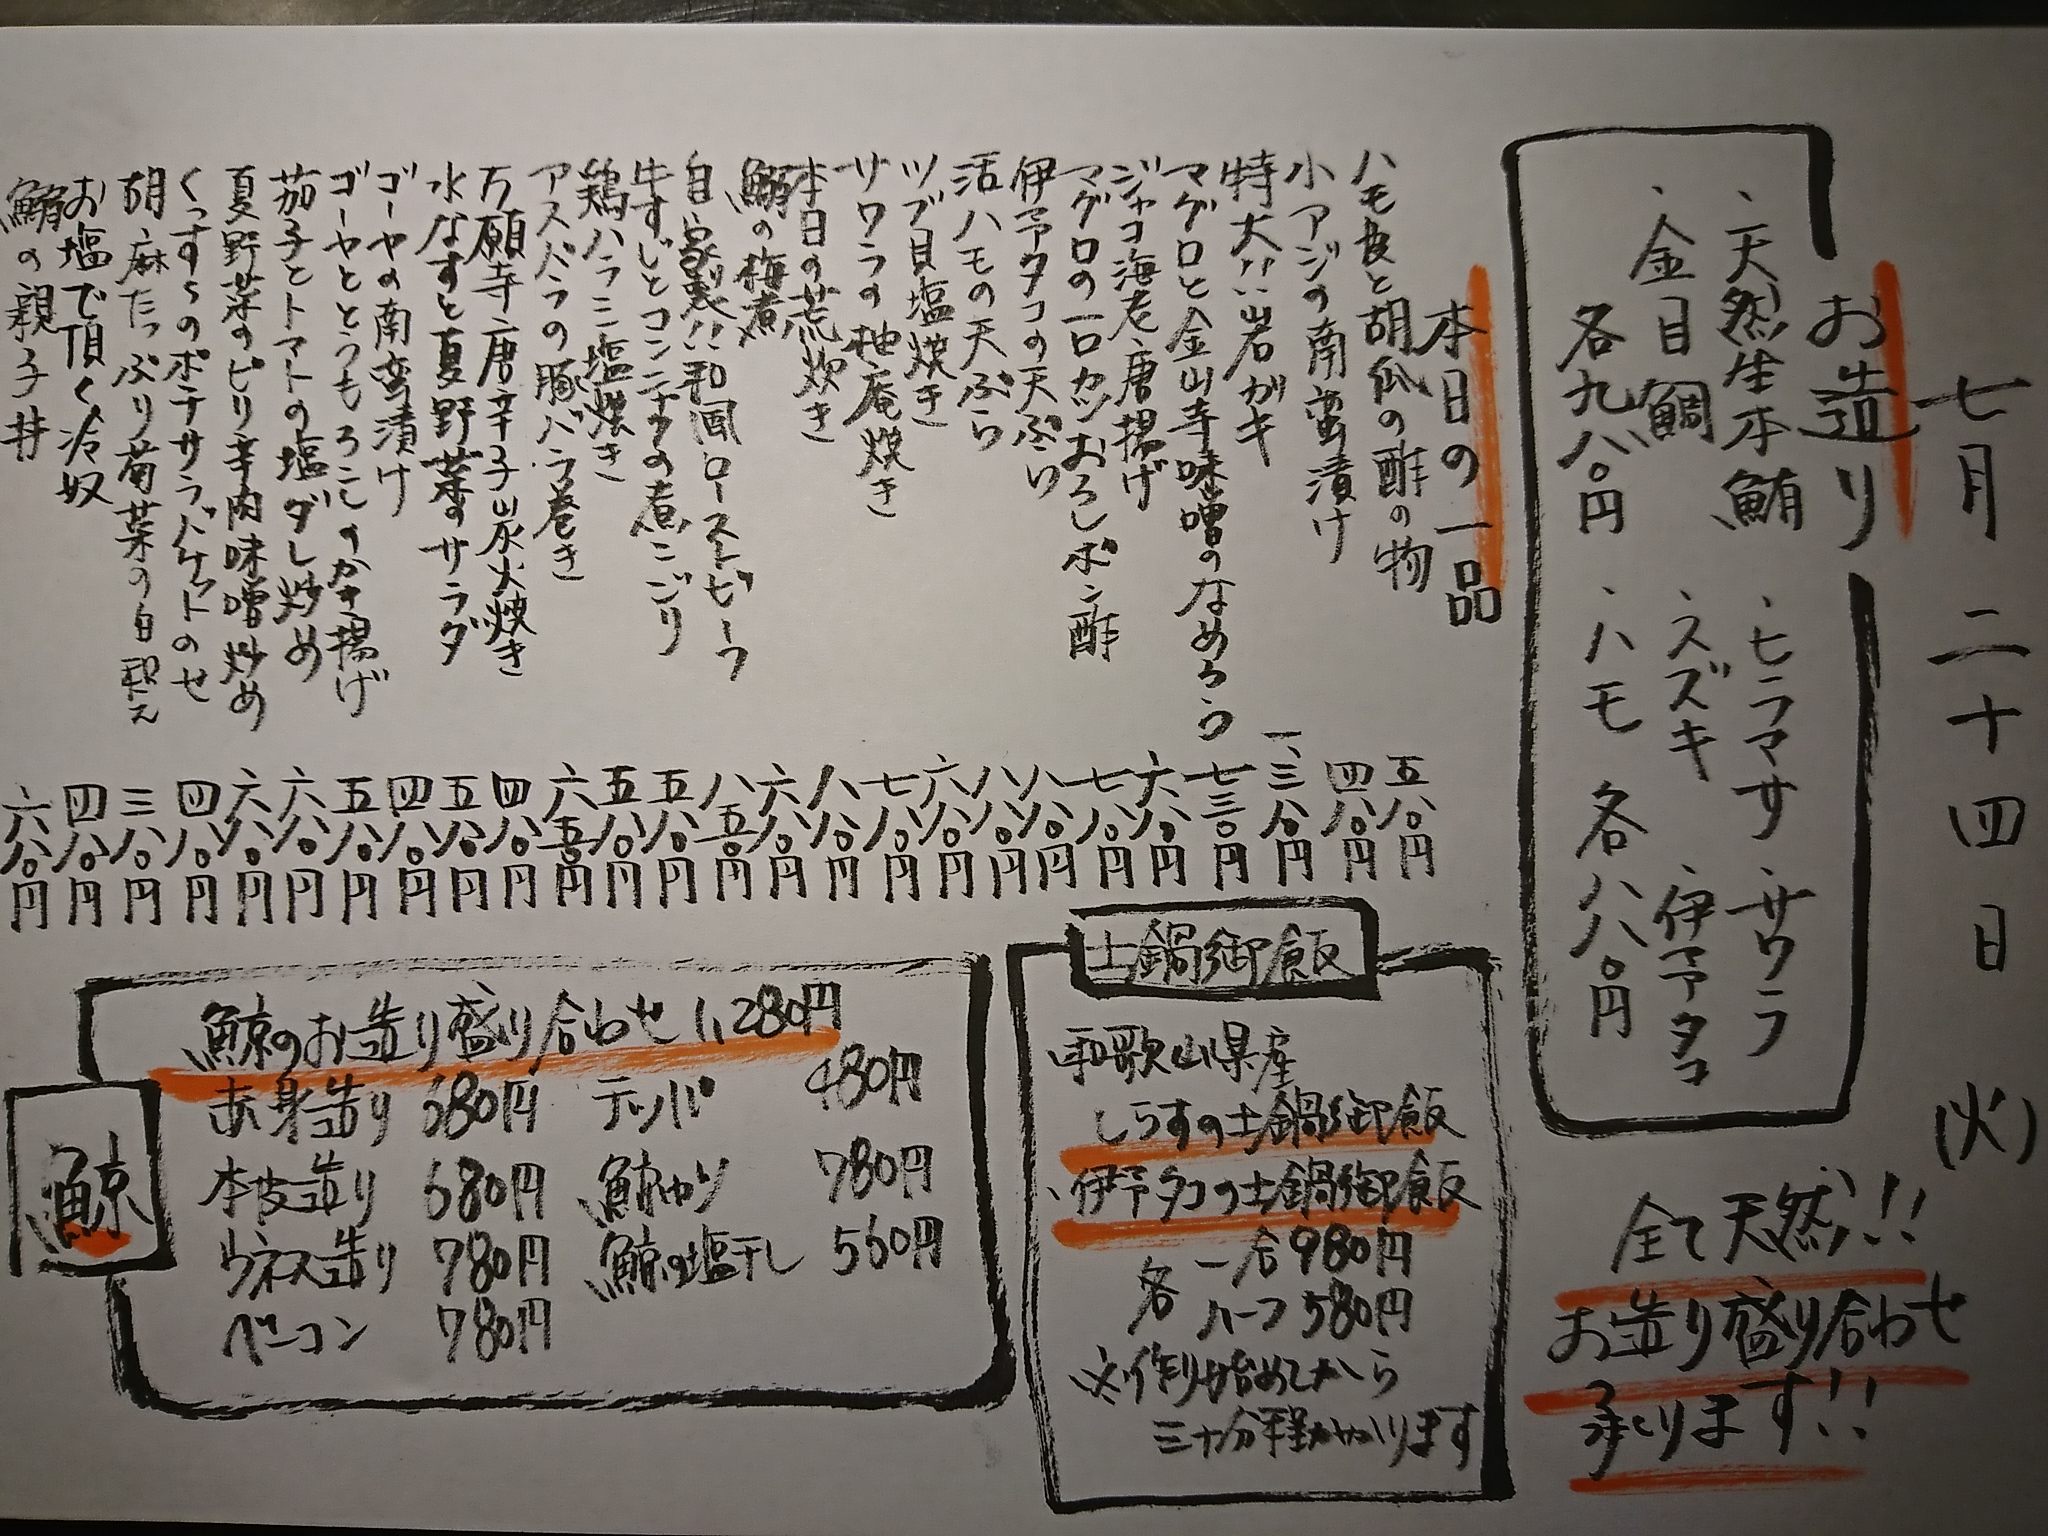 七月二十四日(火)
お造り
・天然生本鮪 ・ヒラマサ ・サワラ
・金目鯛 ・スズキ ・伊予タコ
各九八〇円 ・ハモ 各八八〇円
全て天然!!
お造り盛り合わせ
承ります!!
本日の一品
ハモ皮と胡瓜の酢の物 五八〇円
小アジの南蛮漬け 四八〇円
特大!!岩ガキ 一、三八〇円
マグロと金山寺味噌のなめろう 七三〇円
ジャコ海老唐揚げ 六八〇円
マグロの一口カツおろしポン酢 七八〇円
伊予タコの天ぷら 八八〇円
活ハモの天ぷら 八八〇円
ツブ貝塩焼き 六八〇円
サワラの柚庵焼き 七八〇円
本日の荒炊き 八八〇円
鰯の梅煮 六八〇円
自家製!!和風ローストビーフ 八五〇円
牛すじとコンニャクの煮こごり 五八〇円
鶏ハラミ塩焼き 五八〇円
アスパラの豚バラ巻き 六五〇円
万願寺唐辛子炭火焼き 四八〇円
水なすと夏野菜のサラダ 五八〇円
ゴーヤの南蛮漬け 四八〇円
ゴーヤととうもろこしのかき揚げ 五八〇円
茄子とトマトの塩ダレ炒め 六八〇円
夏野菜のピリ辛肉味噌炒め 六八〇円
くっすぅのポテサラバケットのせ 四八〇円
胡麻たっぷり菊菜の白和え 三八〇円
お塩で頂く冷奴 四八〇円
鮪の親子丼 六八〇円
土鍋御飯
和歌山県産
しらすの土鍋御飯
・伊予タコの土鍋御飯
各 一合 980円
ハーフ 580円
※作り始めてから
三十分程かかります
鯨
鯨のお造り盛り合わせ 1,280円
赤身造り 680円 テッパ 480円
本皮造り 680円 鯨カツ 780円
ウネス造り 780円 鯨の塩干し 560円
ベーコン 780円